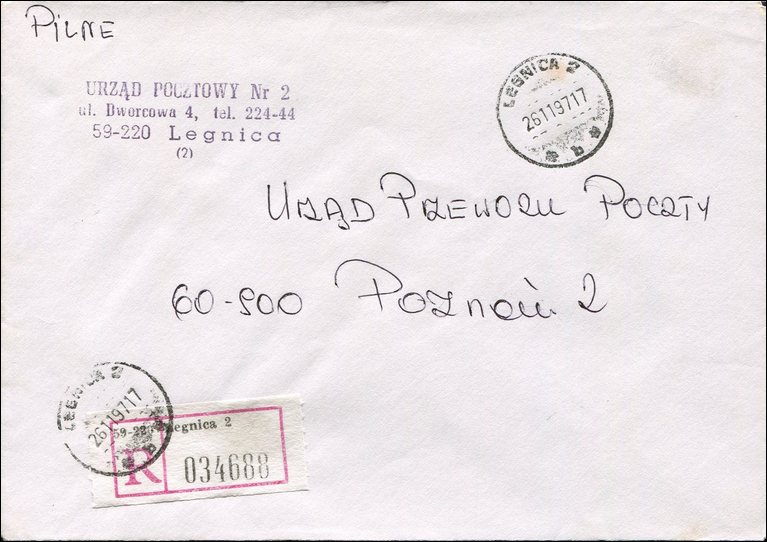 Pilne
URZĄD POCZTOWY Nr 2
ul. Dworcowa 4, tel. 224-44
59-220 Legnica
(2)
LEGNICA 2
26119717
* b *
Urząd Przewozu Poczty
60-900 Poznań 2
LEGNICA 2
26119717
b
59-220 Legnica 2
R
034688